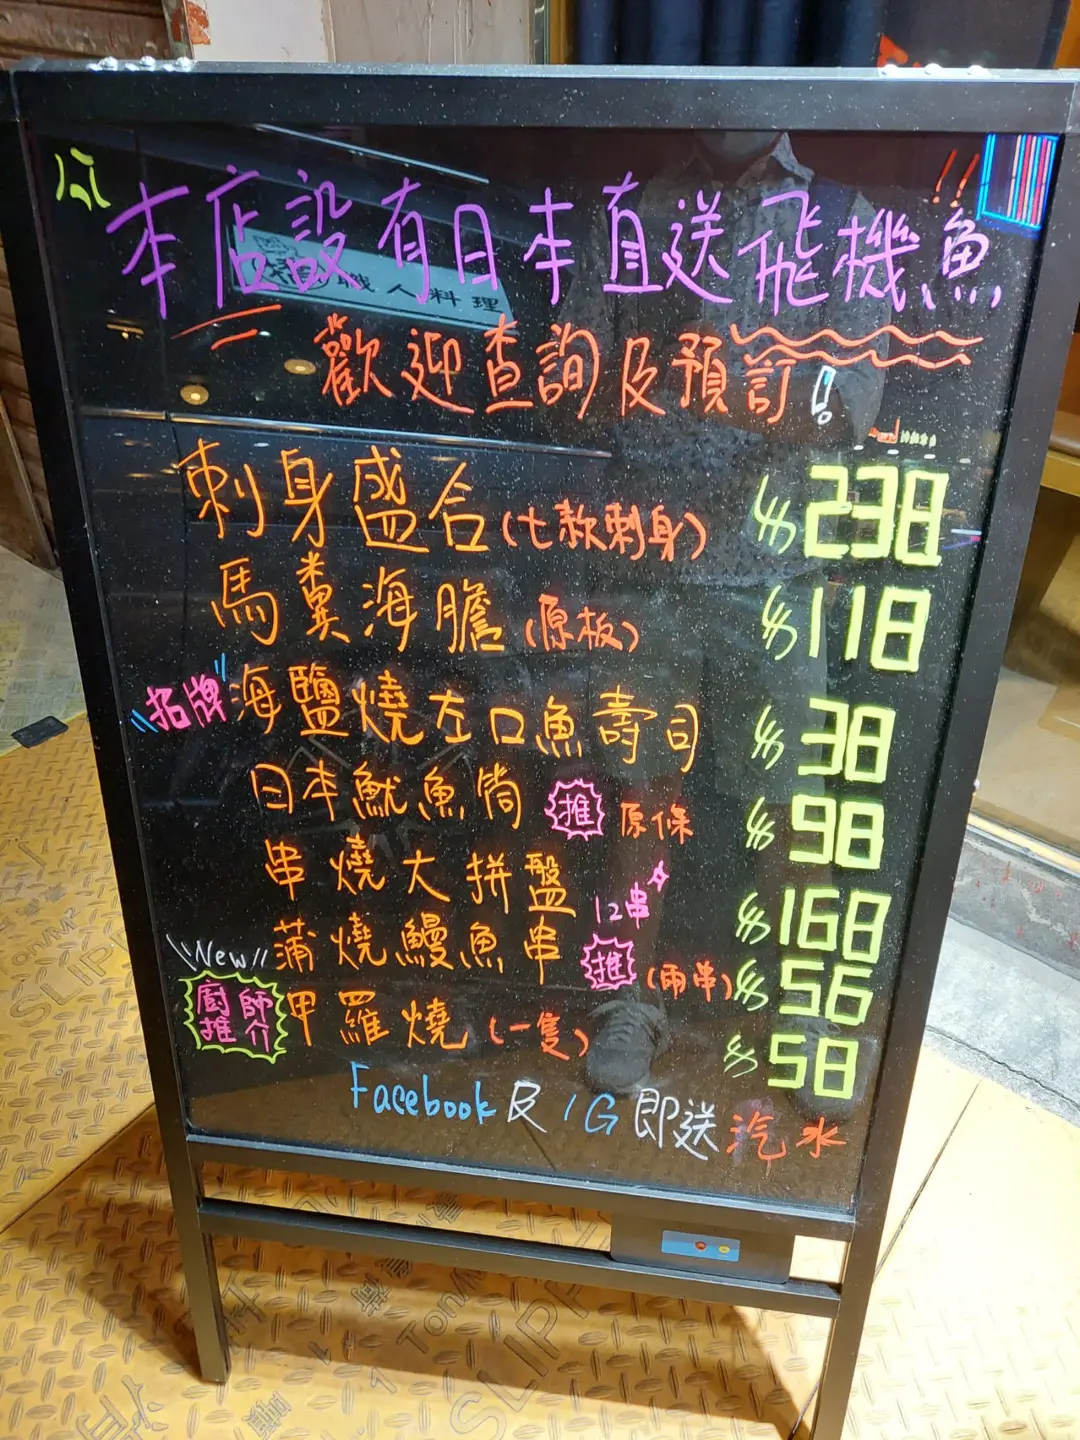 本店設有日本直送飛機魚!!
職人料理
歡迎查詢及預訂!
刺身盛合(七款刺身) $238
馬糞海膽(原板) $118
招牌 海鹽燒左口魚壽司 $38
日本魷魚筒 推 原條 $98
串燒大拼盤 12串 $168
New 蒲燒鰻魚串 推 (兩串) $56
廚師推介 甲羅燒(一隻) $58
Facebook及IG即送汽水
1 TonM²
SLIP
1 TonM²
SLIP